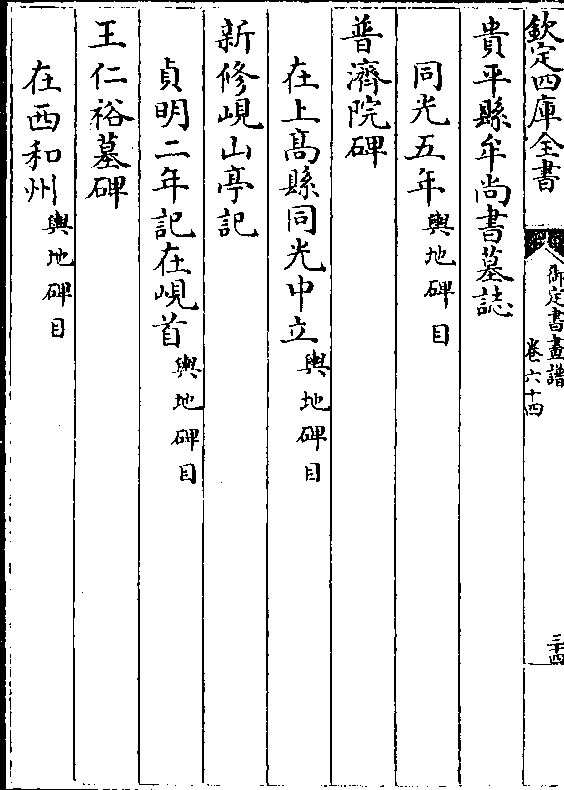 欽定四庫全書
御定書畫譜
卷六十四
三十四
貴平縣牟尚書墓誌
同光五年輿地碑目
普濟院碑
在上髙縣同光中立輿地碑目
新修峴山亭記
貞明二年記在峴首輿地碑目
王仁裕墓碑
在西和州輿地碑目